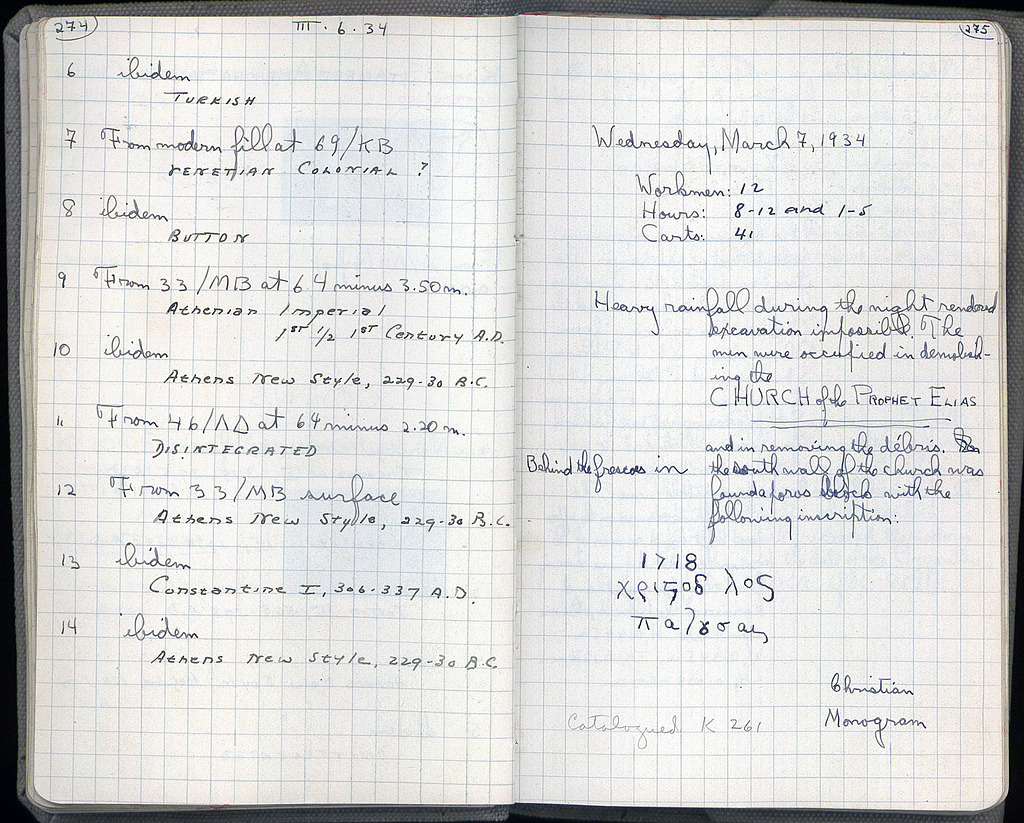 274
III · 6 · 34
6 ibidem
TURKISH
7 From modern fill at 69/KB
VENETIAN COLONIAL ?
8 ibidem
BUTTON
9 From 33/MB at 64 minus 3.50 m.
Athenian Imperial
1ST 1/2 1ST Century A.D.
10 ibidem
Athens New Style, 229-30 B.C.
11 From 46/ΛΔ at 64 minus 2.20 m.
DISINTEGRATED
12 From 33/MB surface
Athens New Style, 229-30 B.C.
13 ibidem
Constantine I, 306-337 A.D.
14 ibidem
Athens New Style, 229-30 B.C.
275
Wednesday, March 7, 1934
Workmen: 12
Hours: 8-12 and 1-5
Carts: 41
Heavy rainfall during the night rendered
excavation impossible. The
men were occupied in demolish-
ing the
CHURCH of the PROPHET ELIAS
and in removing the débris.
Behind the frescoes in the south wall of the church was
found a poros block with the
following inscription:
1718
χριϛοδ λος
Christian
Monogram
Catalogued K 261